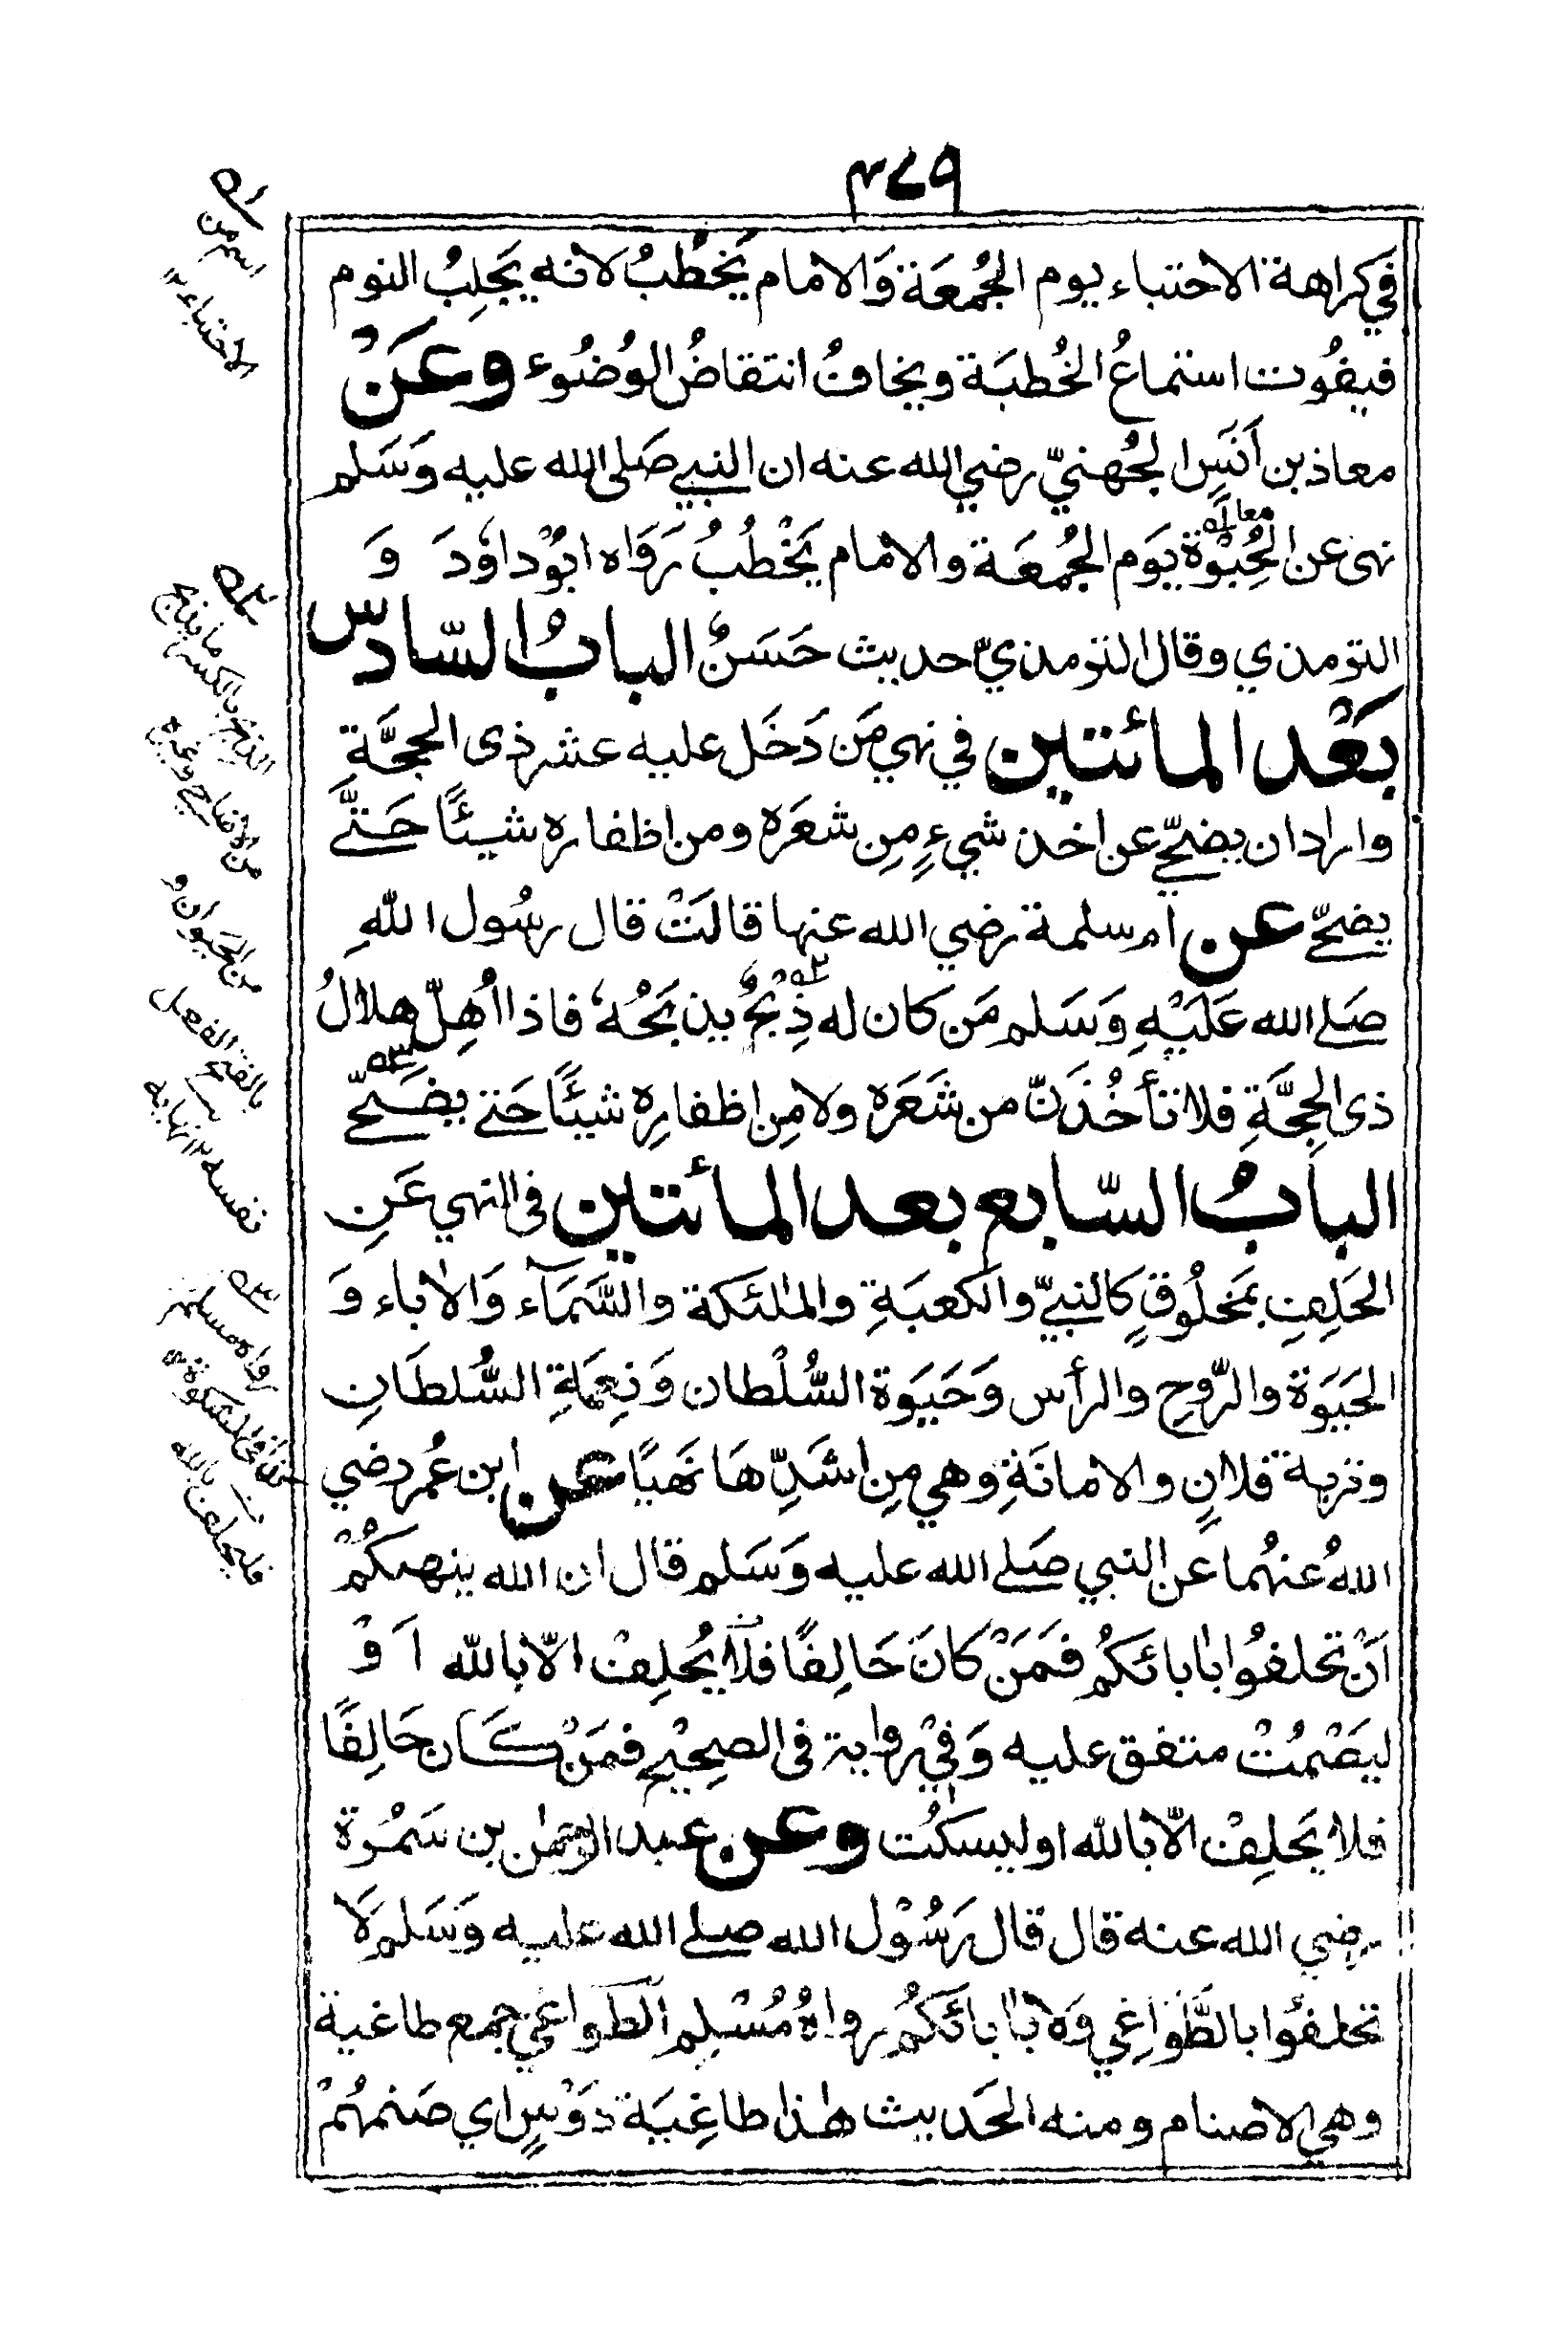 ٣٧٩
في كراهة الاحتباء يوم الجُمعَة وَالامام يَخْطُبُ لانه يَجلِبُ النوم
فيفُوت استماعُ الخُطبَة ويخافُ انتقاضُ الوُضُوء وعَنْ
معاذ بن اَنَسٍ الجُهنيّ رضي الله عنه ان النبي صَلى الله عليه وَسَلم
نهى عن الحُِبْوَة يَوم الجُمعَة والامام يَخْطُبُ رَوَاه ابُوْ داوٗدَ وَ
الترمذي وقال الترمذيّ حديث حَسَنٌ البابُ السّادس
بَعْد المائتين في نهي مَن دَخَل عليه عشر ذى الحجَّة
واراد ان يضحّي عن اخذ شيءٍ مِن شعَره ومن اظفاره شيئًا حَتَّى
يضحّي عن ام سلمة رضي الله عنها قالَتْ قال رسُول اللّٰهِ
صَلى الله عَلَيْهِ وَسَلم مَن كان له ذِبْحٌ يذبَحُهٗ فاذا اُهِلّ هلالُ
ذى الحِجَّةِ فلا تأخُذَنّ من شَعَره ولا مِن اظفارِه شيئًا حَتى يضَحّي
البابُ السّابع بعد المأئتين فى النهي عَنِ
الحَلِفِ بمَخلُوقٍ كالنبيّ والكعبَةِ والملٰئكة والسَّمَآء وَالاٰباء وَ
الحَيَوة والرّوحِ والرأس وَحَيَوة السُّلْطان وَنِعمَةِ السُّلطَانِ
وتربة فلانٍ والامانَةِ وهي مِن اشَدِّهَا نَهيًا عن ابن عُمر رضي
اللهُ عنهُما عَن النبي صَلى الله عليه وَسَلم قال ان الله ينهٰىكُمْ
اَنْ تحلفُوا باٰبائكُم فَمَنْ كانَ حَالِفًا فلا يُحلِفْ الّا باللّٰه اَ وْ
ليَصْمُتْ متفق عليه وَفِيْ رواية فى الصحِيْحِ فمَنْ كان حَالِفًا
فلا يَحلِفْ الّا باللّٰه اوليسكُت وعن عبد الرحمٰن بن سَمُرة
رضي الله عنه قال قال رَسُوْل الله صلى الله عليه وَسَلم لَا
تحلفُوا بالطَّوَاغِي وَلا باٰبائَكُمْ رواهُ مُسْلِم الطَواغي جمع طاغية
وهي الاصنام ومنه الحَديث هٰذا طاغِيَة دَوْسٍ اي صَنمهُمْ
معا
١ه
اسم من
الاحتباء ١٢
٢ه
الذبح بالكسر ما يذبح
من الاضاحي وغيره
من الحيوان و
بالفتح الفعل
نفسه ١٢ نهاية
٣ه
رواه مسلم
فليحلف بالله